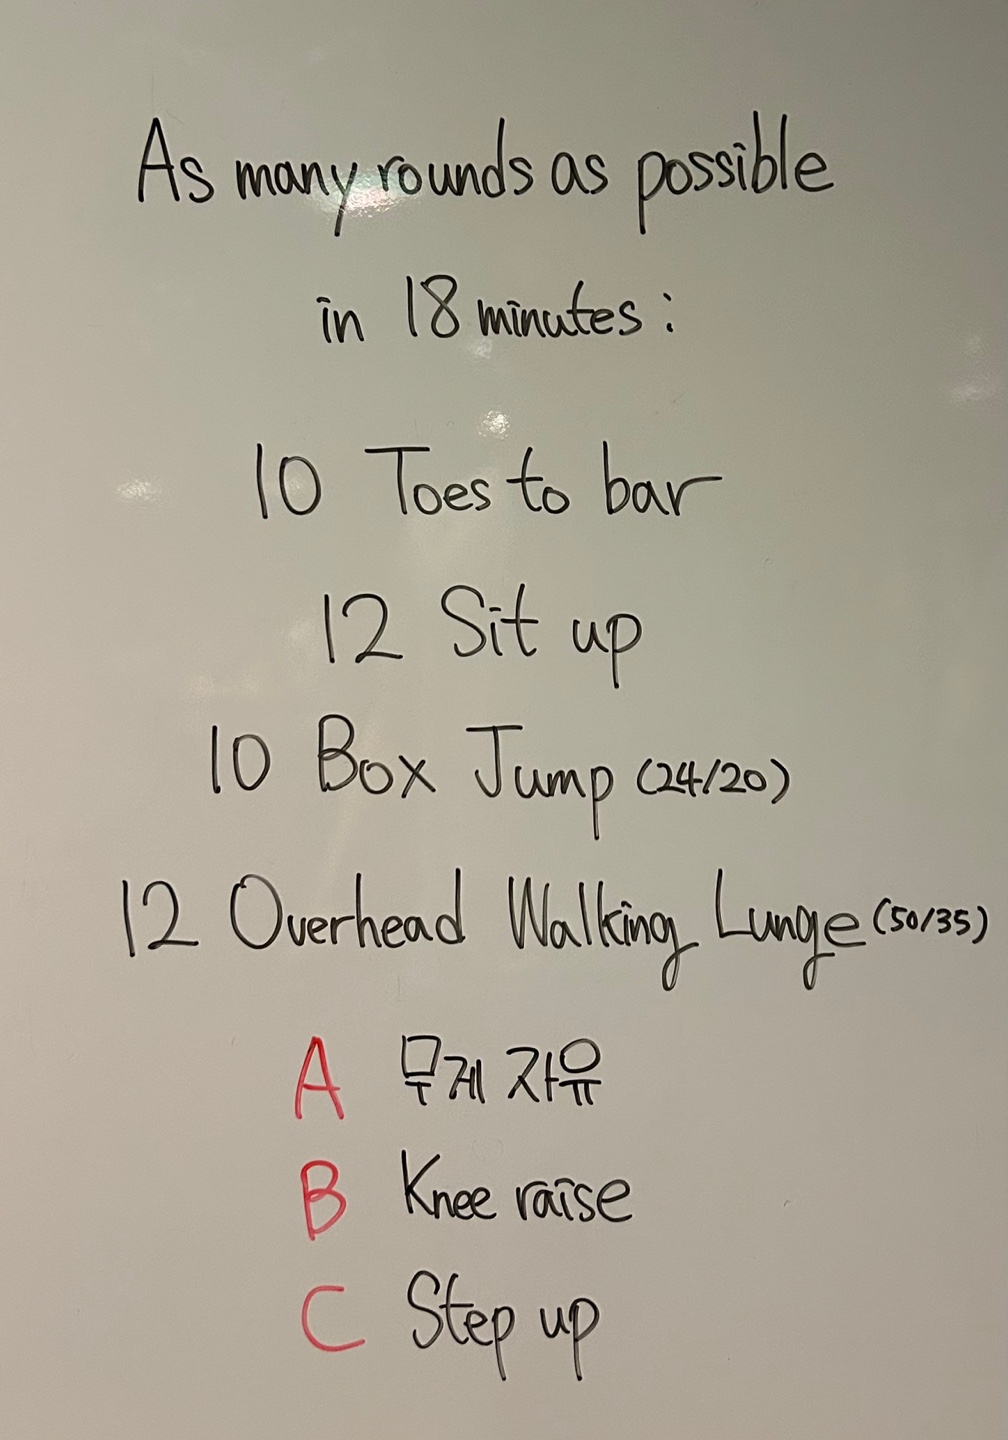 As many rounds as possible
in 18 minutes:
10 Toes to bar
12 Sit up
10 Box Jump (24/20)
12 Overhead Walking Lunge (50/35)
A 무게 자유
B Knee raise
C Step up